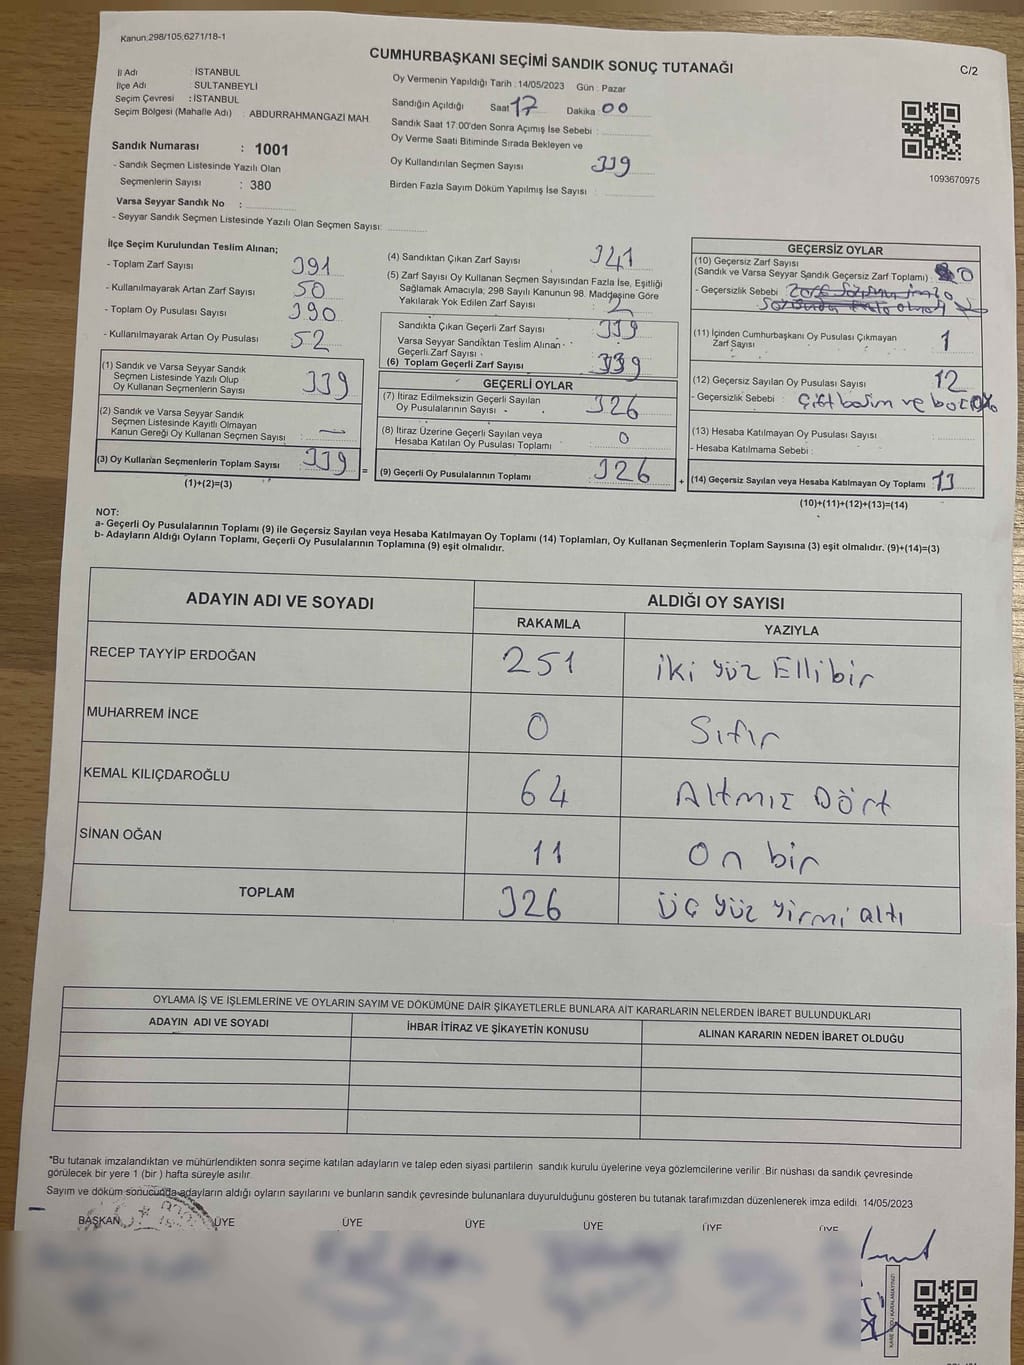 Kanun,298/105,6271/18-1
CUMHURBAŞKANI SEÇİMİ SANDIK SONUÇ TUTANAĞI
C/2
İl Adı : İSTANBUL
İlçe Adı : SULTANBEYLİ
Seçim Çevresi : İSTANBUL
Seçim Bölgesi (Mahalle Adı) : ABDURRAHMANGAZİ MAH
Sandık Numarası : 1001
- Sandık Seçmen Listesinde Yazılı Olan
Seçmenlerin Sayısı : 380
Varsa Seyyar Sandık No :
- Seyyar Sandık Seçmen Listesinde Yazılı Olan Seçmen Sayısı:
Oy Vermenin Yapıldığı Tarih : 14/05/2023 Gün : Pazar
Sandığın Açıldığı Saat 17 Dakika : 00
Sandık Saat 17:00'den Sonra Açımış İse Sebebi :
Oy Verme Saati Bitiminde Sırada Bekleyen ve
Oy Kullandırılan Seçmen Sayısı 339
Birden Fazla Sayım Döküm Yapılmış İse Sayısı :
1093670975
İlçe Seçim Kurulundan Teslim Alınan;
- Toplam Zarf Sayısı 391
- Kullanılmayarak Artan Zarf Sayısı : 50
- Toplam Oy Pusulası Sayısı : 390
- Kullanılmayarak Artan Oy Pusulası : 52
(1) Sandık ve Varsa Seyyar Sandık
Seçmen Listesinde Yazılı Olup
Oy Kullanan Seçmenlerin Sayısı : 339
(2) Sandık ve Varsa Seyyar Sandık
Seçmen Listesinde Kayıtlı Olmayan
Kanun Gereği Oy Kullanan Seçmen Sayısı : —
(3) Oy Kullanan Seçmenlerin Toplam Sayısı : 339 =
(1)+(2)=(3)
(4) Sandıktan Çıkan Zarf Sayısı : 341
(5) Zarf Sayısı Oy Kullanan Seçmen Sayısından Fazla İse, Eşitliği
Sağlamak Amacıyla; 298 Sayılı Kanunun 98. Maddesine Göre
Yakılarak Yok Edilen Zarf Sayısı : 2
Sandıkta Çıkan Geçerli Zarf Sayısı : 339
Varsa Seyyar Sandıktan Teslim Alınan
Geçerli Zarf Sayısı
(6) Toplam Geçerli Zarf Sayısı : 339
GEÇERLİ OYLAR
(7) İtiraz Edilmeksizin Geçerli Sayılan
Oy Pusulalarının Sayısı : 326
(8) İtiraz Üzerine Geçerli Sayılan veya
Hesaba Katılan Oy Pusulası Toplamı : 0
(9) Geçerli Oy Pusulalarının Toplamı : 326 +
GEÇERSİZ OYLAR
(10) Geçersiz Zarf Sayısı
(Sandık ve Varsa Seyyar Sandık Geçersiz Zarf Toplamı) : 0
- Geçersizlik Sebebi
(11) İçinden Cumhurbaşkanı Oy Pusulası Çıkmayan
Zarf Sayısı : 1
(12) Geçersiz Sayılan Oy Pusulası Sayısı : 12
- Geçersizlik Sebebi : Çift basım ve bozuk
(13) Hesaba Katılmayan Oy Pusulası Sayısı :
- Hesaba Katılmama Sebebi :
(14) Geçersiz Sayılan veya Hesaba Katılmayan Oy Toplamı : 13
(10)+(11)+(12)+(13)=(14)
NOT:
a- Geçerli Oy Pusulalarının Toplamı (9) ile Geçersiz Sayılan veya Hesaba Katılmayan Oy Toplamı (14) Toplamları, Oy Kullanan Seçmenlerin Toplam Sayısına (3) eşit olmalıdır. (9)+(14)=(3)
b- Adayların Aldığı Oyların Toplamı, Geçerli Oy Pusulalarının Toplamına (9) eşit olmalıdır.
ADAYIN ADI VE SOYADI ALDIĞI OY SAYISI
RAKAMLA YAZIYLA
RECEP TAYYİP ERDOĞAN 251 iki yüz Ellibir
MUHARREM İNCE 0 Sıfır
KEMAL KILIÇDAROĞLU 64 Altmız Dört
SİNAN OĞAN 11 On bir
TOPLAM 326 üç yüz yirmi altı
OYLAMA İŞ VE İŞLEMLERİNE VE OYLARIN SAYIM VE DÖKÜMÜNE DAİR ŞİKAYETLERLE BUNLARA AİT KARARLARIN NELERDEN İBARET BULUNDUKLARI
ADAYIN ADI VE SOYADI İHBAR İTİRAZ VE ŞİKAYETİN KONUSU ALINAN KARARIN NEDEN İBARET OLDUĞU
*Bu tutanak imzalandıktan ve mühürlendikten sonra seçime katılan adayların ve talep eden siyasi partilerin sandık kurulu üyelerine veya gözlemcilerine verilir .Bir nüshası da sandık çevresinde
görülecek bir yere 1 (bir ) hafta süreyle asılır.
Sayım ve döküm sonucunda adayların aldığı oyların sayılarını ve bunların sandık çevresinde bulunanlara duyurulduğunu gösteren bu tutanak tarafımızdan düzenlenerek imza edildi. 14/05/2023
BAŞKAN ÜYE ÜYE ÜYE ÜYE ÜYE ÜYE
KARE KODU KARALAMAYINIZ!